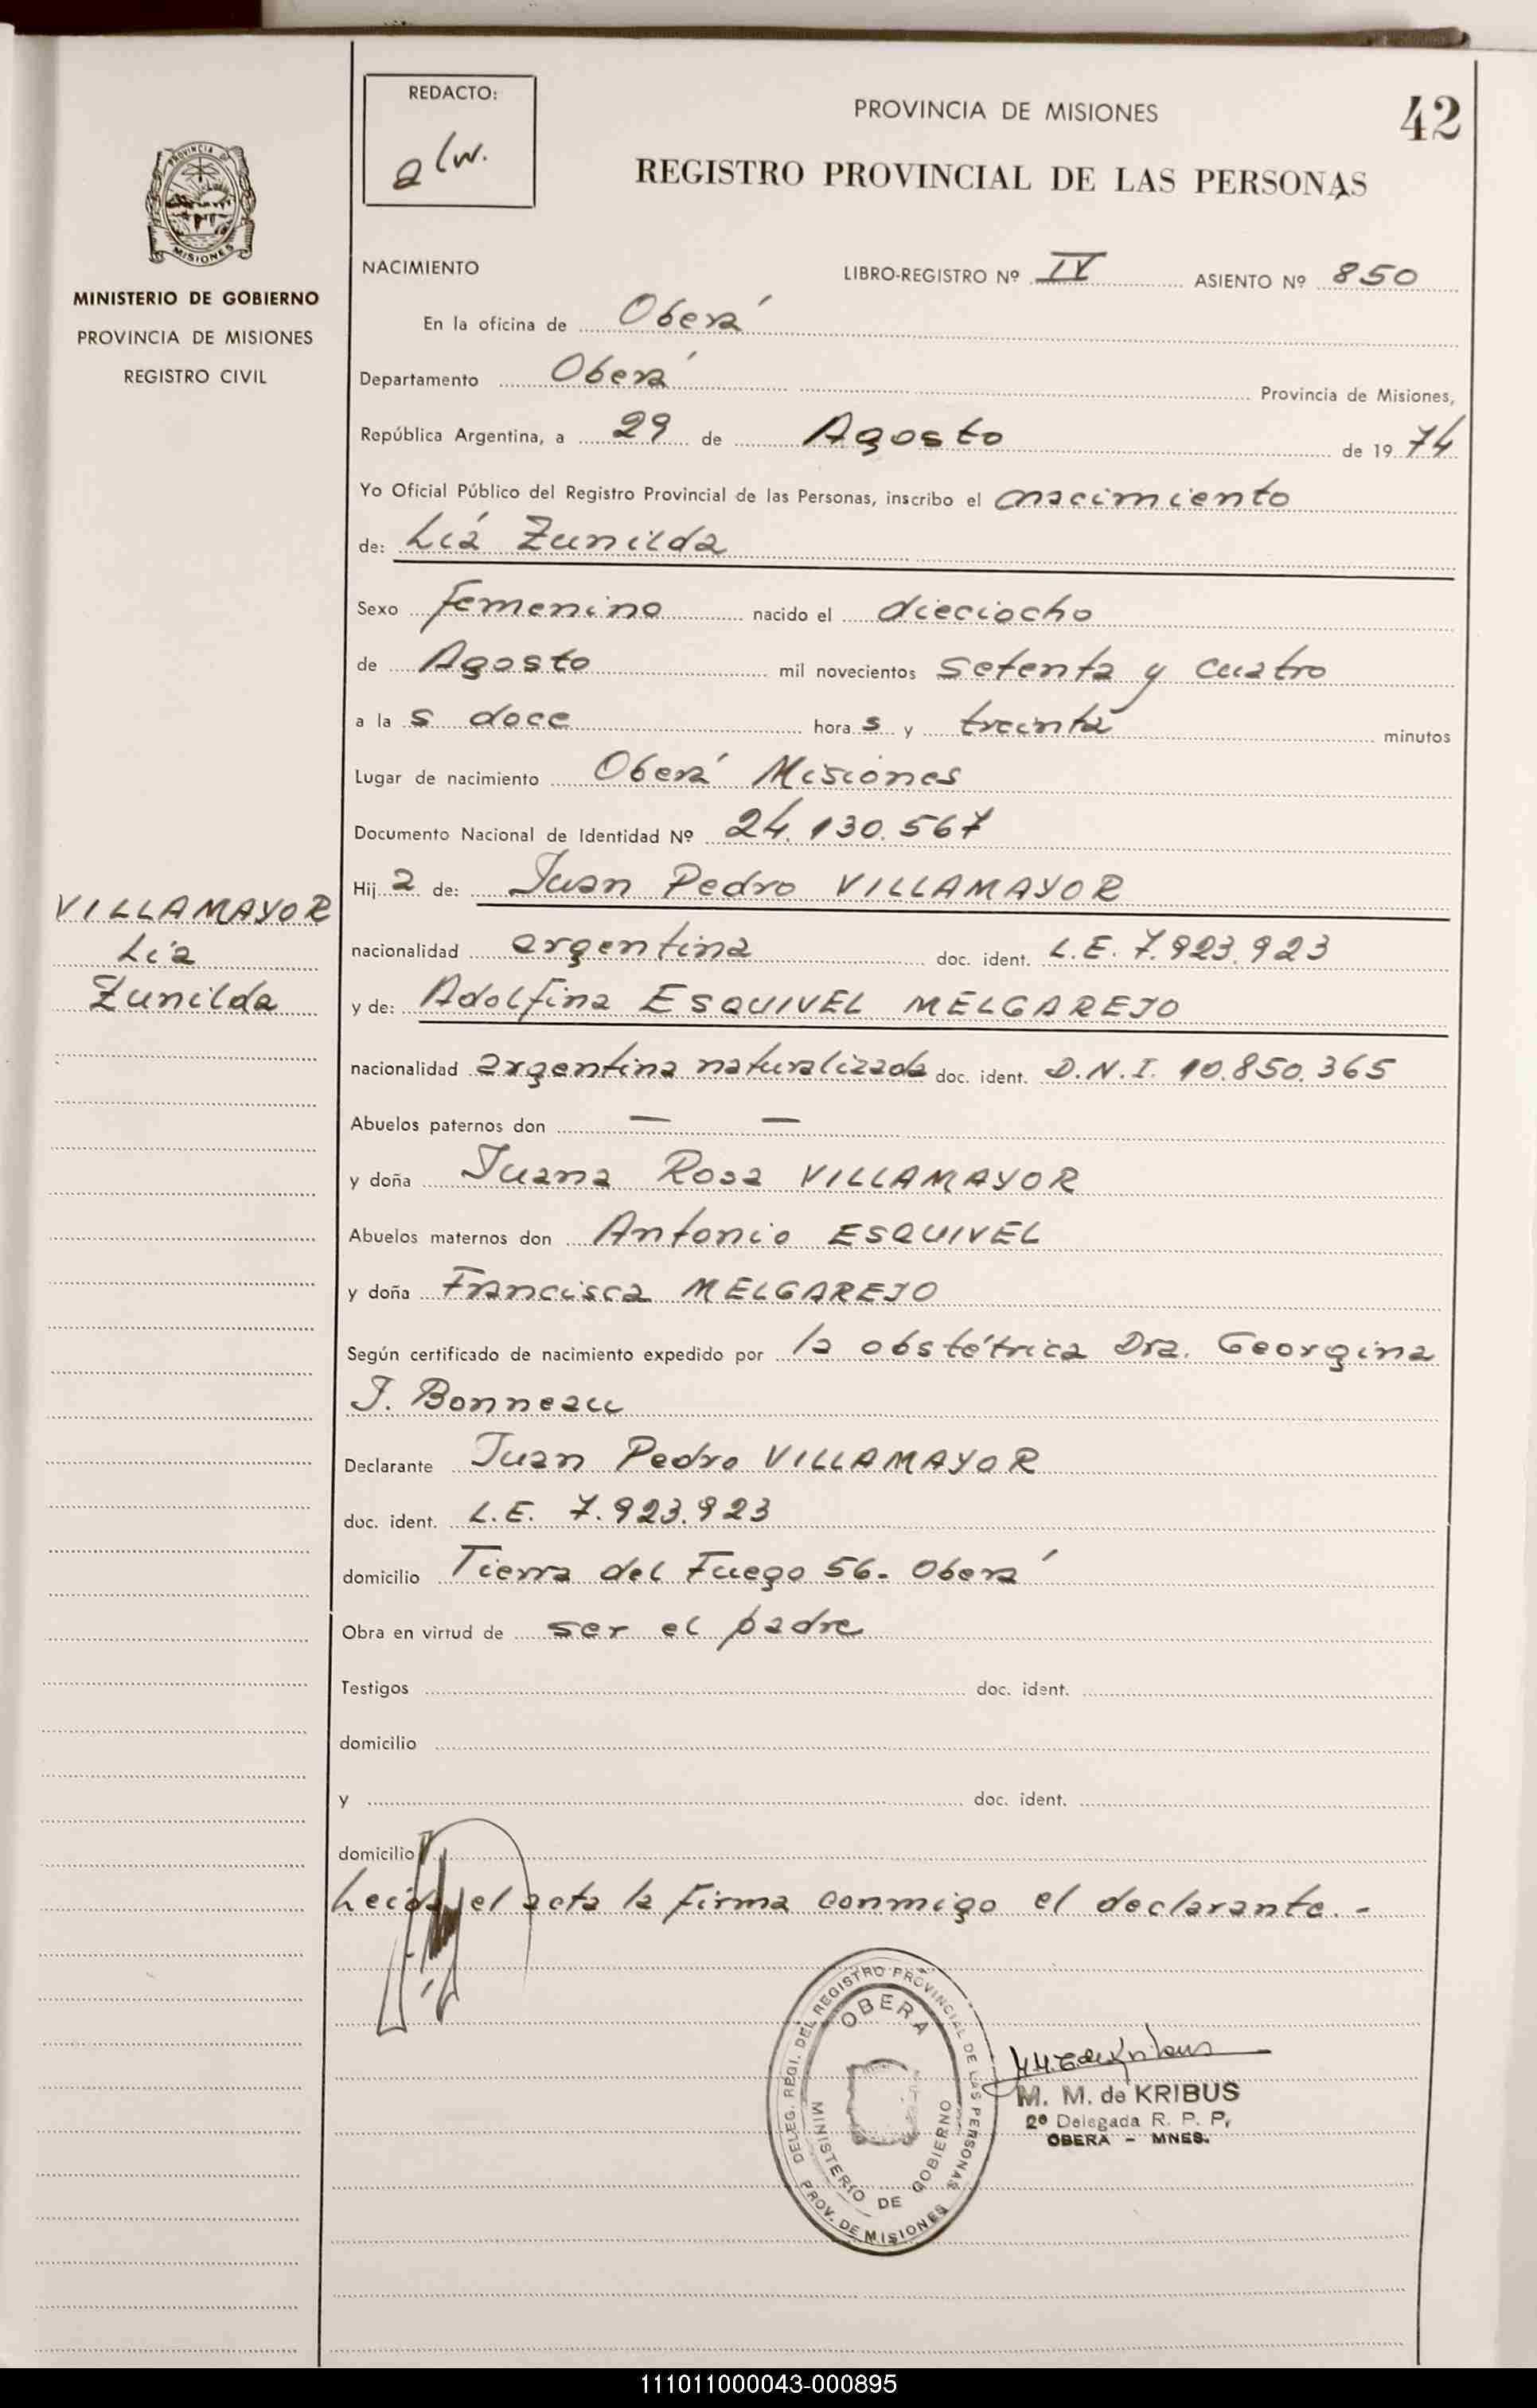 REDACTO:
alw.
PROVINCIA DE MISIONES
42
REGISTRO PROVINCIAL DE LAS PERSONAS
PROVINCIA
MISIONES
MINISTERIO DE GOBIERNO
PROVINCIA DE MISIONES
REGISTRO CIVIL
NACIMIENTO
LIBRO-REGISTRO Nº IV ASIENTO Nº 850
En la oficina de Oberá
Departamento Oberá Provincia de Misiones,
República Argentina, a 29 de Agosto de 1974
Yo Oficial Público del Registro Provincial de las Personas, inscribo el nacimiento
de: Lía Zunilda
Sexo femenino nacido el dieciocho
de Agosto mil novecientos setenta y cuatro
a la s doce hora s y treinta minutos
Lugar de nacimiento Oberá Misiones
Documento Nacional de Identidad Nº 24.130.567
Hij a de: Juan Pedro VILLAMAYOR
VILLAMAYOR
Lía
Zunilda
nacionalidad argentina doc. ident. L.E. 7.923.923
y de: Adolfina ESQUIVEL MELGAREJO
nacionalidad argentina naturalizada doc. ident. D.N.I. 10.850.365
Abuelos paternos don — —
y doña Juana Rosa VILLAMAYOR
Abuelos maternos don Antonio ESQUIVEL
y doña Francisca MELGAREJO
Según certificado de nacimiento expedido por la obstétrica Dra. Georgina
J. Bonneau
Declarante Juan Pedro VILLAMAYOR
doc. ident. L.E. 7.923.923
domicilio Tierra del Fuego 56. Oberá
Obra en virtud de ser el padre
Testigos doc. ident.
domicilio
y doc. ident.
domicilio
Leída el acta la firma conmigo el declarante.-
DELEG. REGI. DEL REGISTRO PROVINCIAL DE LAS PERSONAS
OBERA
MINISTERIO DE GOBIERNO
PROV. DE MISIONES
M. M. de KRIBUS
2º Delegada R. P. P.
OBERA - MNES.
111011000043-000895